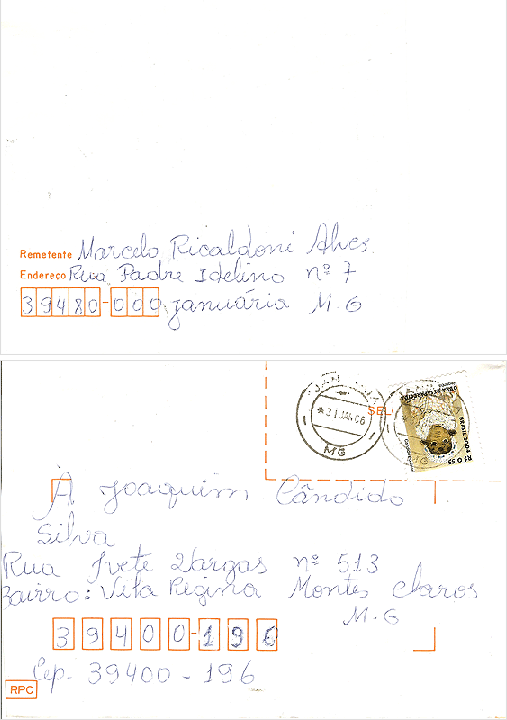 Remetente Marcelo Ricaldoni Alves.
Endereço Rua Padre Idelino nº 7
39480-000, januária M.G
SEL
JANUÁRIA
*21 JAN.06
MG
R$ 0.55
À Joaquim Cândido
Silva
Rua Ivete Vargas nº 513
Bairro: Vila Regina Montes Claros
M.G
39400-196
Cep. 39400-196
RPC